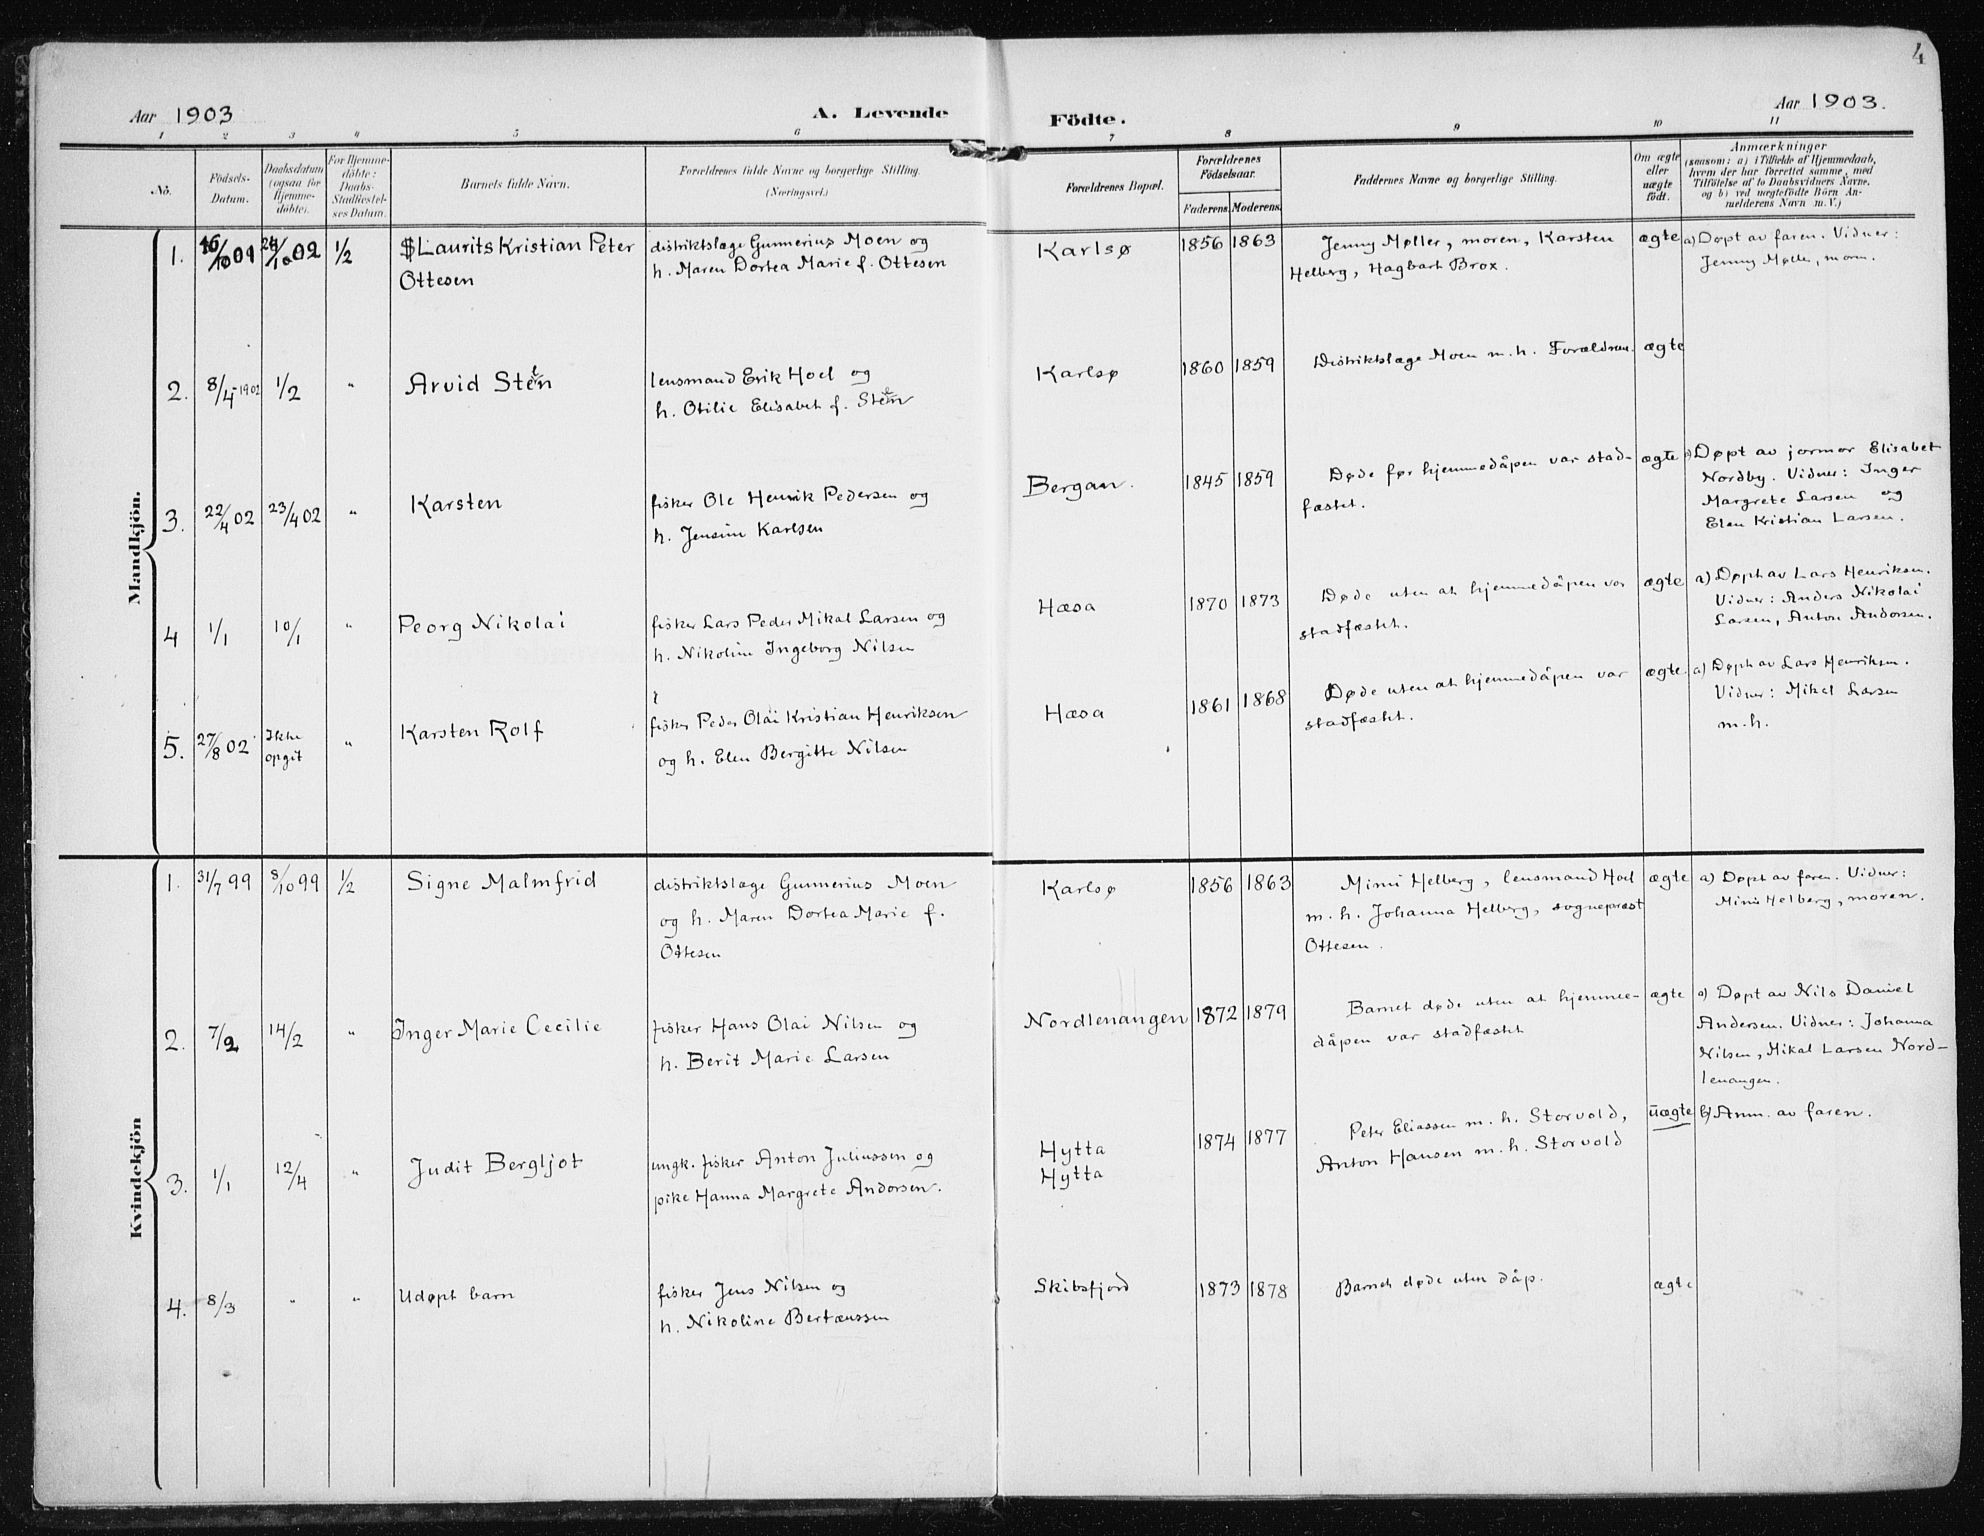 4
Aar 1903
A. Levende Födte.
Aar 1903.
1 2 3 4 5 6 7 8 9 10 11
No.
Födsels-
Datum.
Daabsdatum
(ogsaa for
Hjemme-
döbte).
For Hjemme-
döbte:
Daabs-
Stadfæstel-
ses Datum.
Barnets fulde Navn.
Forældrenes fulde Navne og borgerlige Stilling.
(Næringsvei.)
Forældrenes Bopæl.
Forældrenes
Födselsaar.
Faderens. Moderens.
Faddernes Navne og borgerlige Stilling.
Om ægte
eller
uægte
födt.
Anmærkninger
(saasom: a) i Tilfælde af Hjemmedaab,
hvem der har forrettet samme, med
Tilföielse af to Daabsvidners Navne,
og b) ved uægtefödte Börn An-
melderens Navn m. V.)
Mandkjön.
1. 16/10 24/10 02 1/2 Laurits Kristian Peter
Ottesen
distriktslæge Gunnerius Moen og
h. Maren Dortea Marie f. Ottesen
Karlsø 1856 1863
Jenny Møller, moren, Karsten
Helberg, Hagbart Brox.
ægte
a) Døpt av faren. Vidner:
Jenny Møller, moren.
2. 8/4-1902 1/2 " Arvid Steen
lensmand Erik Hoel og
h. Otilie Elisabet f. Steen
Karlsø 1860 1859
Distriktslæge Moen m. h. Forældrene.
ægte
3. 22/4 02 23/4 02 " Karsten
fisker Ole Henrik Pedersen og
h. Jensine Karlsen
Bergan. 1845 1859
Døde før hjemmedåpen var stad-
fæstet.
ægte
a) Døpt av jormor Elisabet
Nordby. Vidner: Inger
Margrete Larsen og
Elen Kristian Larsen.
4 1/1 10/1 " Peorg Nikolai
fisker Lars Peder Mikal Larsen og
h. Nikoline Ingeborg Nilsen
Hæsa 1870 1873
Døde uten at hjemmedåpen var
stadfæstet.
ægte
a) Døpt av Lars Henriksen.
Vidner: Anders Nikolai
Larsen, Anton Andorsen.
5. 27/8 02 Ikke
opgit " Karsten Rolf
fisker Peder Olai Kristian Henriksen
og h. Elen Bergitte Nilsen
Hæsa 1861 1868
Døde uten at hjemmedåpen var
stadfæstet.
ægte.
a) Døpt av Lars Henriksen.
Vidner: Mikal Larsen
m.h.
Kvindekjön
1. 31/7 99 8/10 99 1/2 Signe Malmfrid
distriktslæge Gunnerius Moen
og h. Maren Dortea Marie f.
Ottesen
Karlsø 1856 1863
Mimi Helberg, lensmand Hoel
m. h. Johanna Helberg, sogneprest
Ottesen.
ægte
a) Døpt av faren. Vidner:
Mimi Helberg, moren.
2. 7/2 14/2 " Inger Marie Cecilie
fisker Hans Olai Nilsen og
h. Berit Marie Larsen
Nordlenangen 1872 1879
Barnet døde uten at hjemme-
dåpen var stadfæstet
ægte
a) Døpt av Nils Daniel
Andersen. Vidner: Johanna
Nilsen, Mikal Larsen Nord-
lenangen.
3. 1/1 12/4 " Judit Bergljot
ungk. fisker Anton Juliussen og
pike Hanna Margrete Andorsen.
Hytta
Hytta
1874 1877
Peter Eliassen m. h. Storvold,
Anton Hansen m. h. Storvold
uægte
b) Anm. av faren.
4. 8/3 " " Udøpt barn
fisker Jens Nilsen og
h. Nikoline Bertæussen
Skibsfjord 1873 1878
Barnet døde uten dåp.
ægte